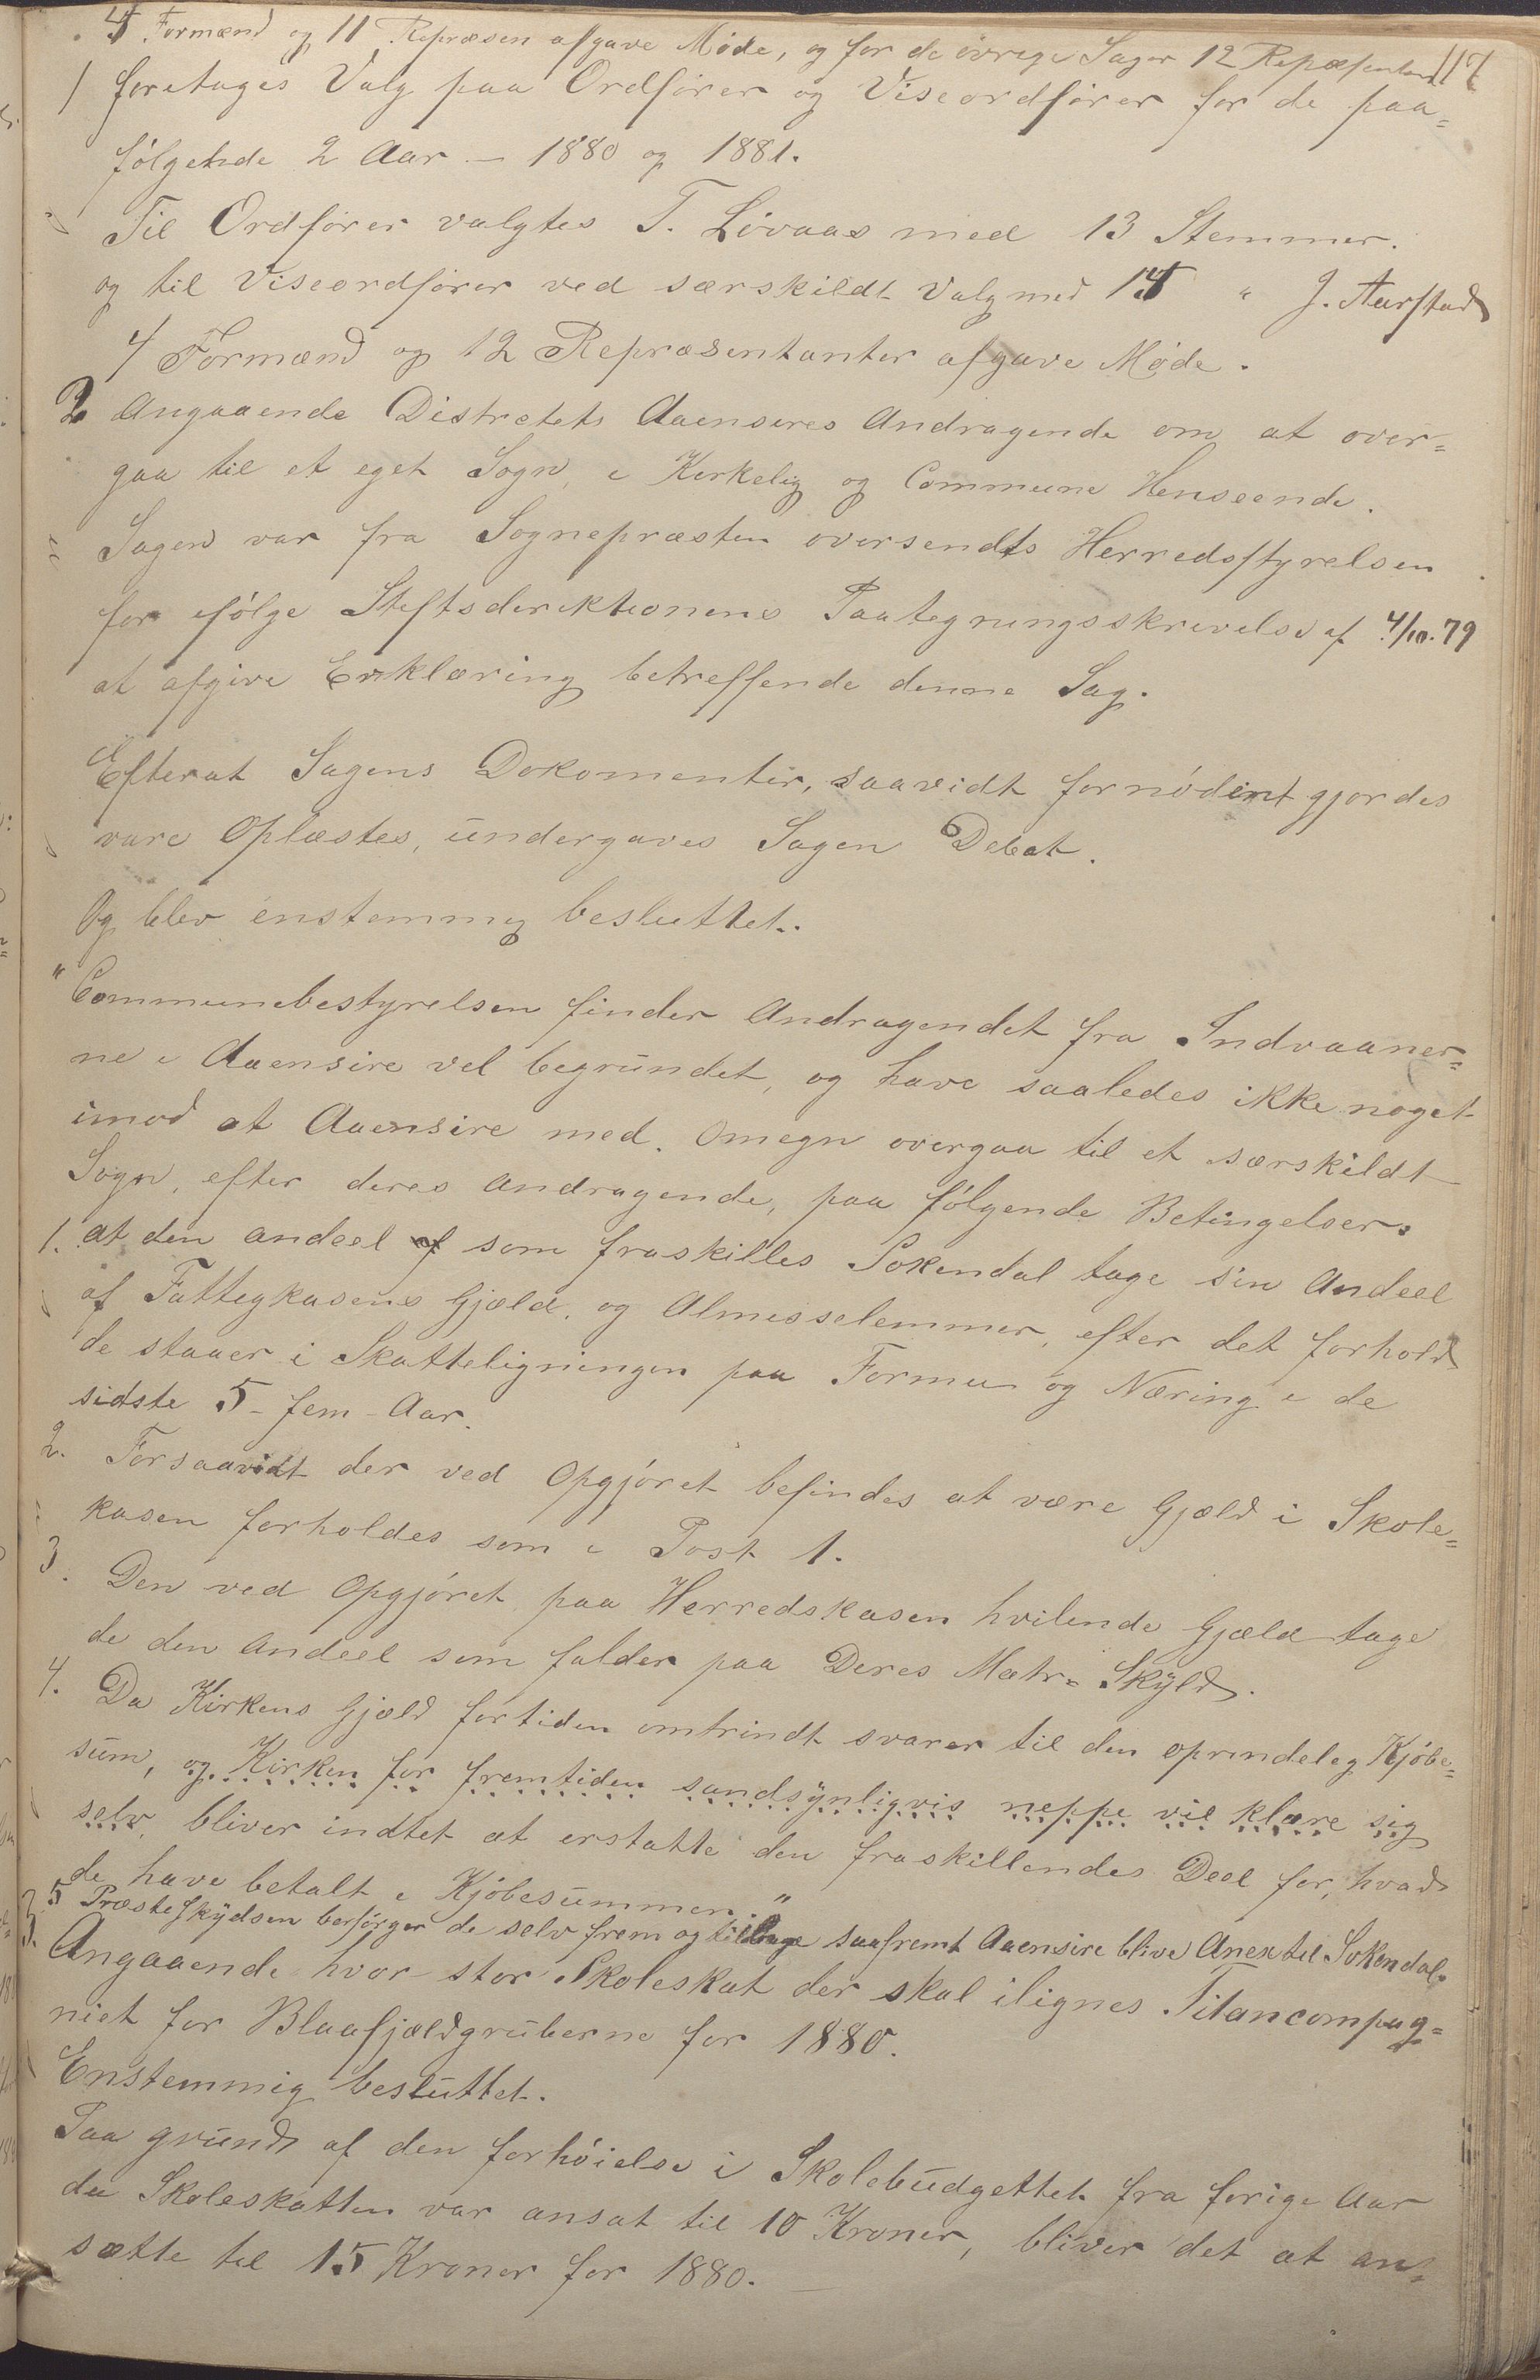 4 Formænd og 11 Repræsen afgave Møde, og for de övrige Sager 12 Repræsentant 117
1 foretages Valg paa Ordförer og Viseordförer for de paa=
fölgende 2 Aar – 1880 og 1881.
Til Ordförer valgtes T. Lövaas med 13 Stemmer.
og til Viseordförer ved særskildt Valg med 14 " J. Aarstad
4 Formænd og 12 Repræsentanter afgave Møde.
2 Angaaende Distrctets Aaensires Andragende om at over=
gaa til et eget Sogn, i Kirkelig og Commune Henseende.
Sagen var fra Sognepræsten oversendts Herredsstyrelsen
for ifölge Stiftsdirektionens Paategningsskrivelse af 4/10.79
at afgive Erklæring betreffende denne Sag.
Efterat Sagens Dokomenter, saavidt fornödent gjordes
vare Oplæstes, undergaves Sagen Debat.
Og blev enstemmig besluttet.
"Communebestyrelsen finder Andragendet fra Indvaaner=
ne i Aaensire vel begrundet, og have saaledes ikke noget
imod at Aaensire med. Omegn overgaa til et særskildt
Sogn, efter deres Andragende, paa fölgende Betingelser.
1. at den andeel af som fraskilles Sokendal tage sin Andeel
af Fattigkasens Gjæld. og Almisselemmer, efter det forhold
de staaer i Skatteligningen paa Formue og Næring i de
sidste 5 - fem - Aar.
2. Forsaavidt der ved Opgjöret befindes at være Gjæld i Skole=
kasen forholdes som i Post 1.
3. Den ved Opgjöret paa Herredskasen hvilende Gjæld tage
de den Andeel som falder paa Deres Matr. Skyld.
4. Da Kirkens Gjæld fortiden omtrindt svarer til den oprindeleg Kjöbe=
sum, og Kirken for fremtiden sandsynligvis neppe vil klare sig
selv, bliver indtet at erstatte den fraskillendes Deel for, hvad
de have betalt i Kjöbesummen."
5 Præsteskydsen besörger de selv frem og tilbage saafremt Aaensire blive Anex til Sokendal.
3. Angaaende hvor stor Skoleskat der skal ilignes Titancompag=
niet for Blaafjældgruberne for 1880.
Enstemmig besluttet.
Paa grund af den forhöielse i Skolebudgettet fra forige Aar
da Skoleskatten var ansat til 10 Kroner, bliver det at an=
sætte til 15 Kroner for 1880. –